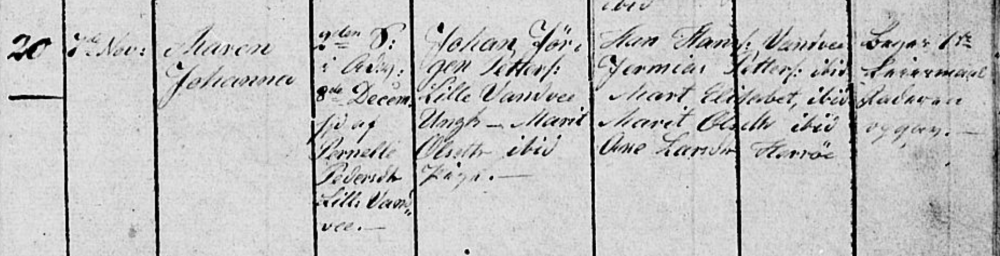 ibid
20
7de Nov:
Maren
Johanna
2den S:
i Adv:
8de Decem.
af
Pernelle
Pedersdr
Lille Vand,,
vee.—
Johan Jör,,
gen Petters:
Lille Vandvee
Ungk — Marit
Olsdtr ibid
Pige. —
Hans: Vandvee
Jermias Petters: ibid
Marit Elisabet, ibid
Marit Olsdtr ibid
Ane Larsdr Herröe
Begges 1te
Leiermaal
Faderen
opgav. —